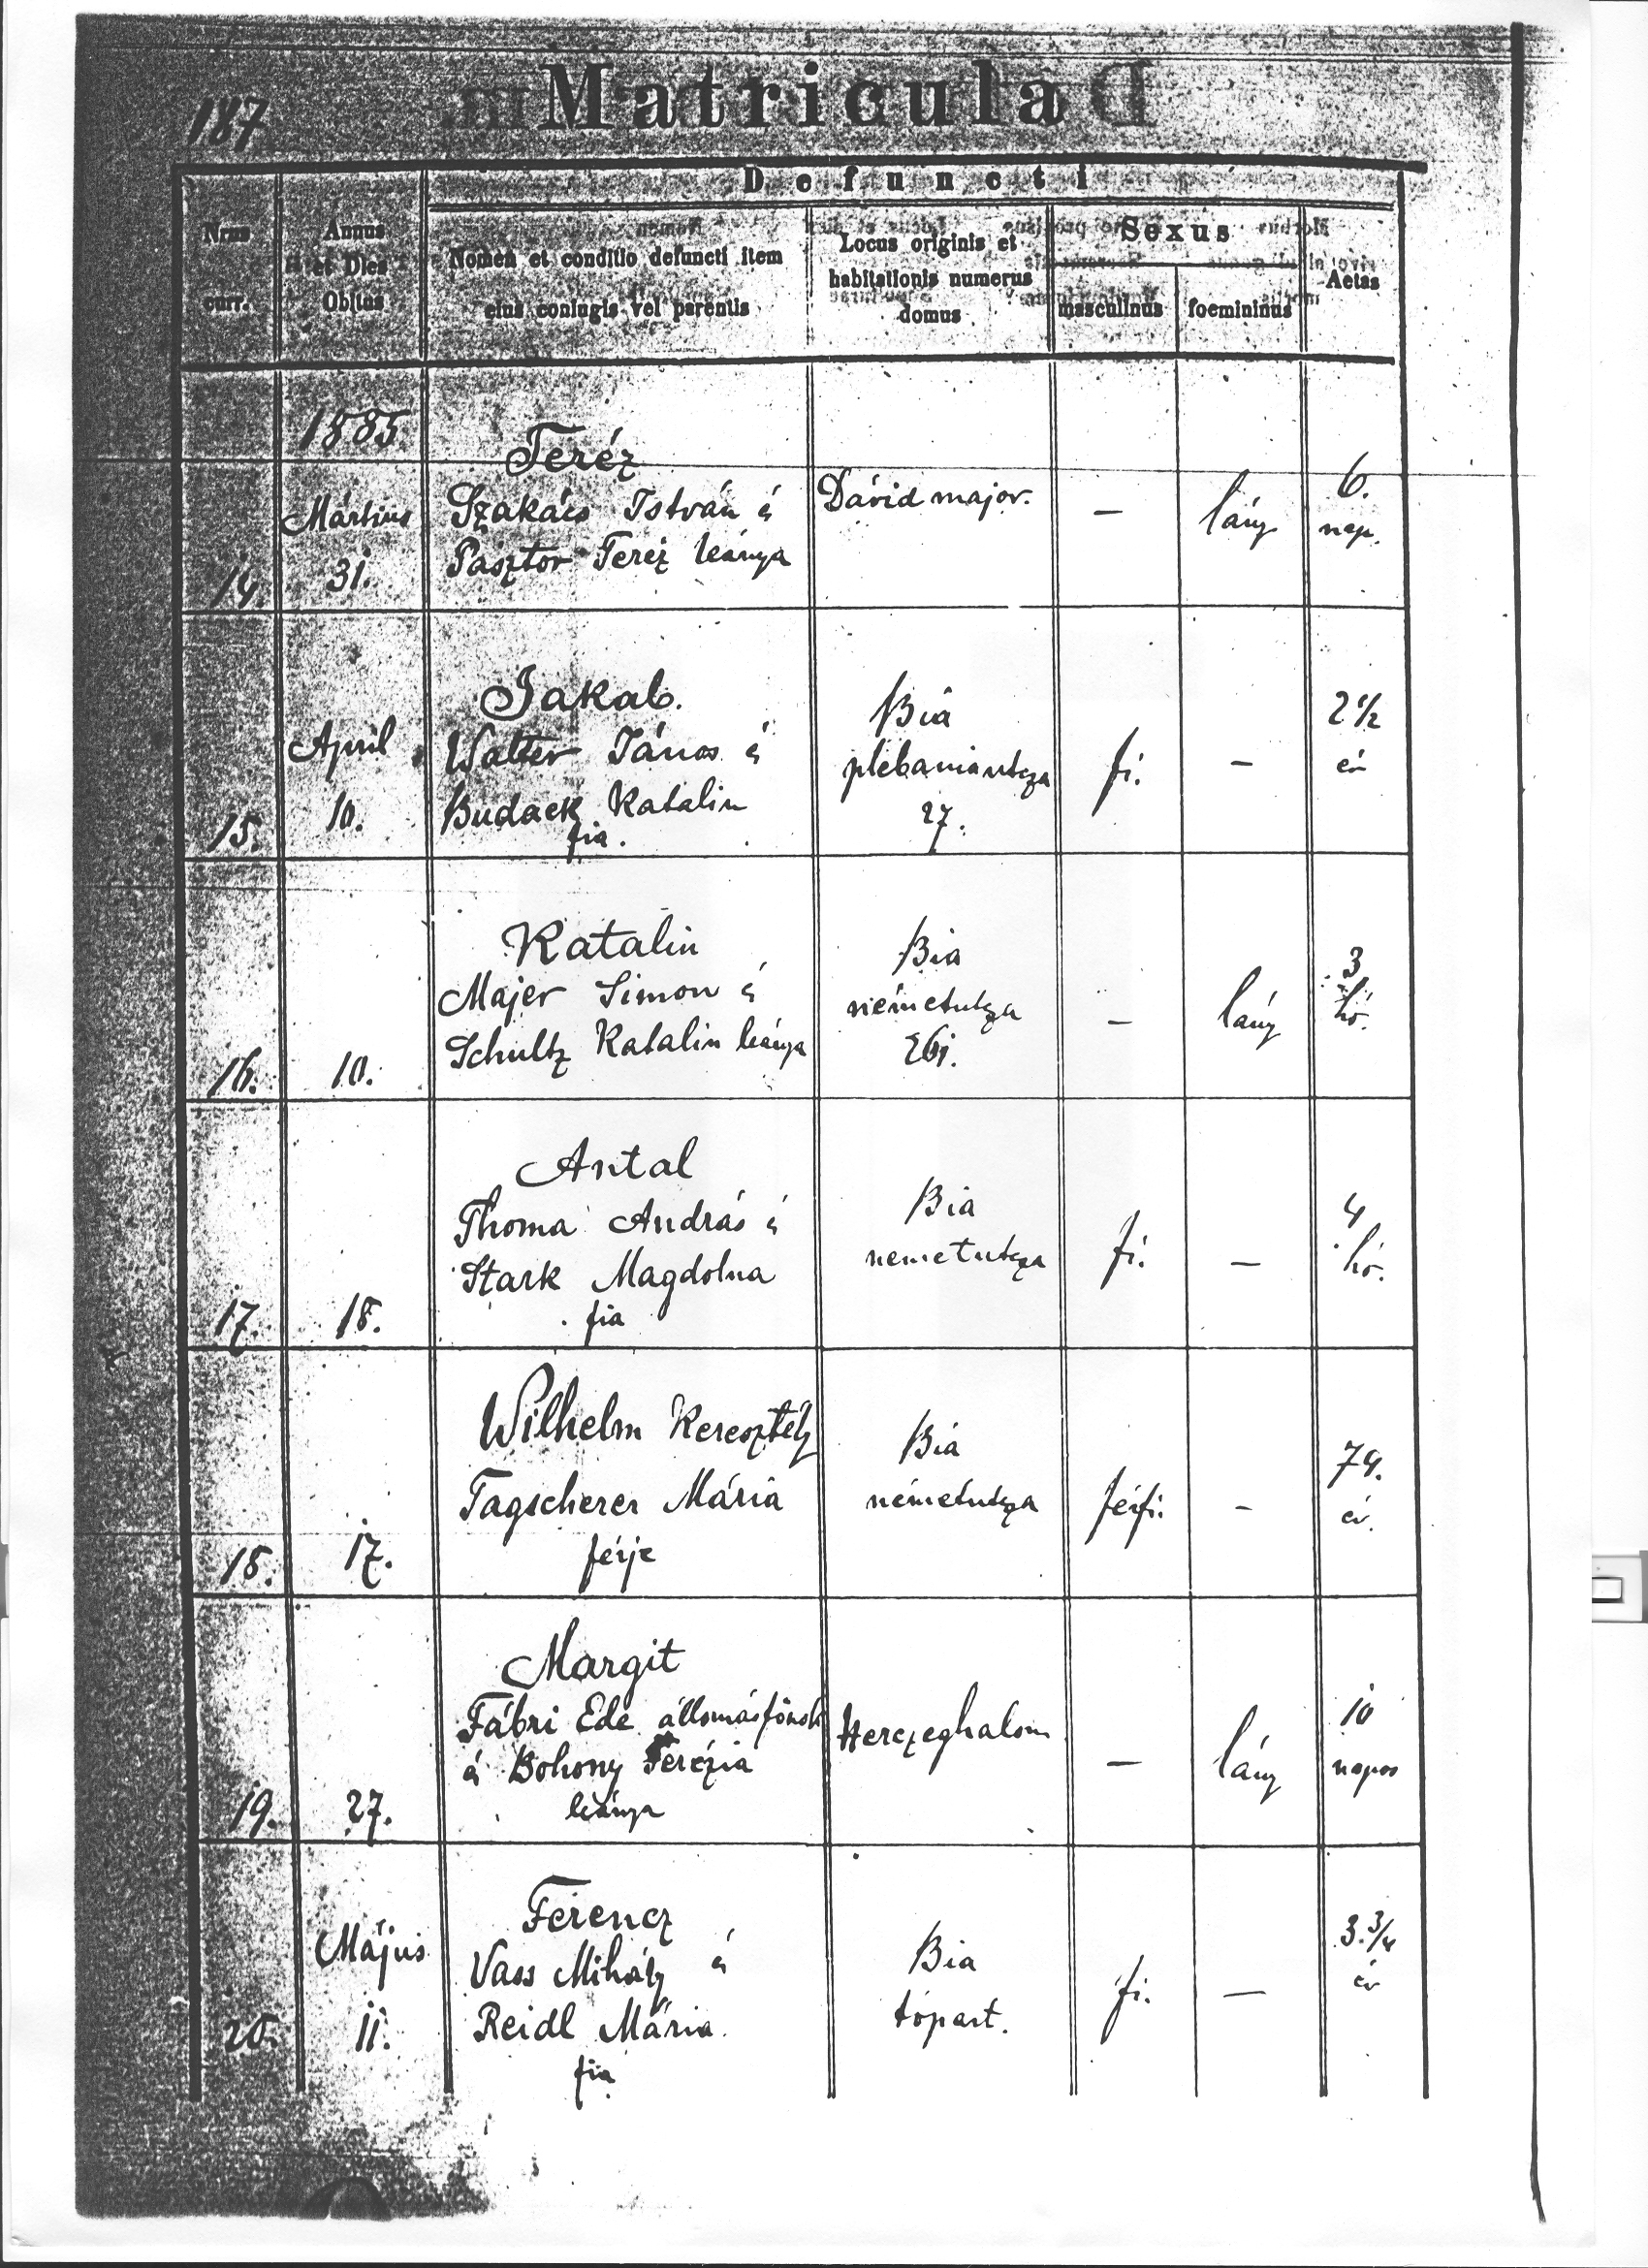 187
Matricula
Defuncti
Nrus curr.
Annus et Dies Obitus
Nomen et conditio defuncti item eius coniugis vel parentis
Locus originis et habitationis numerus domus
Sexus
masculinus
foemininus
Aetas
1885
Teréz
Mártius
Szakács István é
Dávid major.
—
lány
6.
nap.
14.
31.
Pásztor Teréz leánya
Jakab.
April
Walter János é
Bia
plebániautcza
fi.
—
2 1/2
év
15.
10.
Budaek Katalin
27.
fia.
Katalin
Majer Simon é
Bia
németutcza
—
lány
3
hó.
16.
10.
Schultz Katalin leánya
Antal
Thoma András é
Bia
németutcza
fi.
—
4
hó.
17.
18.
Stark Magdolna
fia
Wilhelm Keresztély
Tagscherer Mária
Bia
németutcza
férfi.
-
74.
év.
18.
17.
férje
Margit
Fábri Ede állomásfőnök
Herczeghalom
—
lány
10
napos
é Bohony Terézia
19.
27.
leánya
Ferencz
Május
Vass Mihály é
Bia
tópart.
fi.
—
3. 3/4
év
20.
11.
Reidl Mária
fia